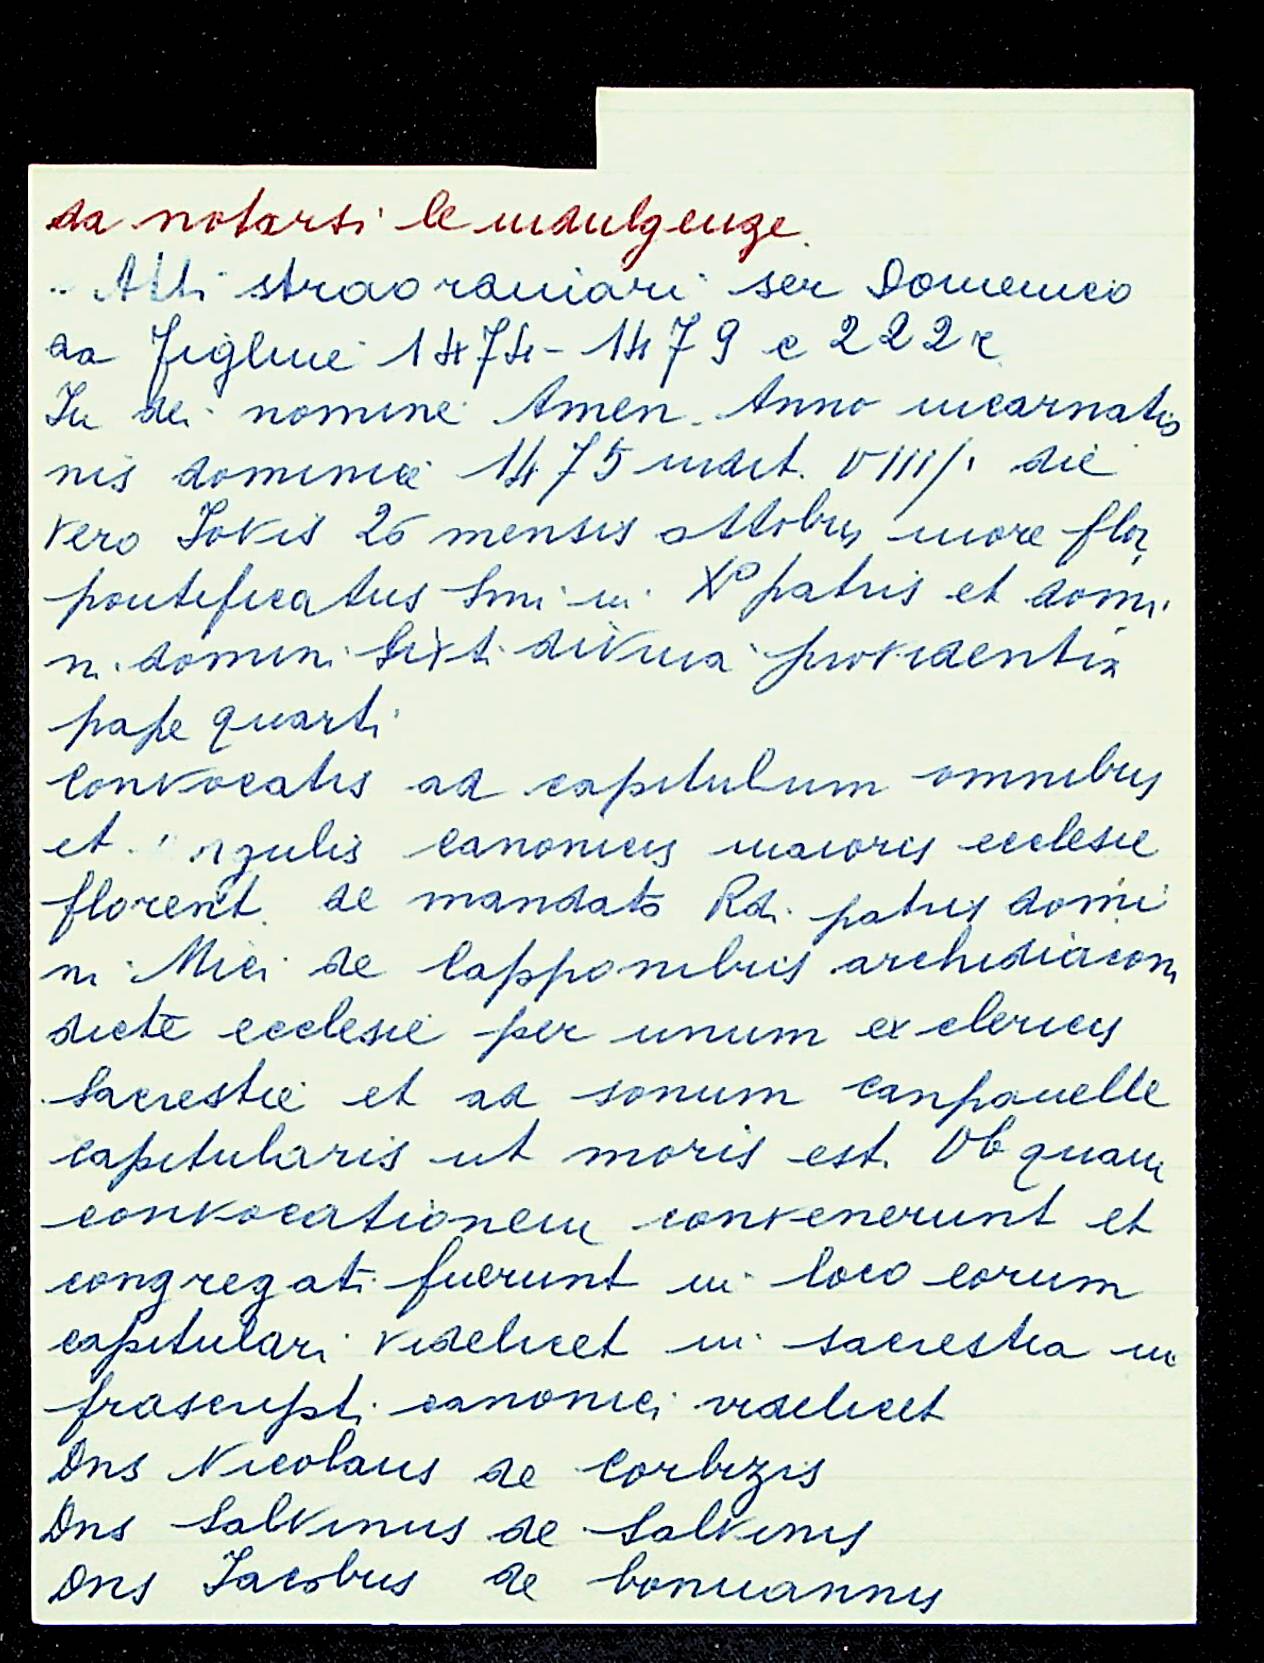 da notarsi le indulgenze.
.. Atti straordinari ser Domenico
da Figline 1474-1479 c 222 r
In dei nomine Amen. Anno incarnatio
nis dominice 1475 indict. VIIII. die
vero Jovis 26 mensis ottobris more flor.
pontificatus Smi in Xº patris et domi
ni domini Sixti divina providentia
pape quarti
Convocatis ad capitulum omnibus
et singulis canonicis maioris ecclesie
florent. de mandato Rdi patris domi
ni Mici de Capponibus archidiaconi
dicte ecclesie per unum ex clericis
Sacrestie et ad sonum canpanelle
capitularis ut moris est. Ob quam
convocationem convenerunt et
congregati fuerunt in loco eorum
capitulari videlicet in sacrestia in
frascripti canonici videlicet
Dns Nicolaus de Corbizis
Dns Salvinus de Salvinis
Dns Jacobus de bonuannis